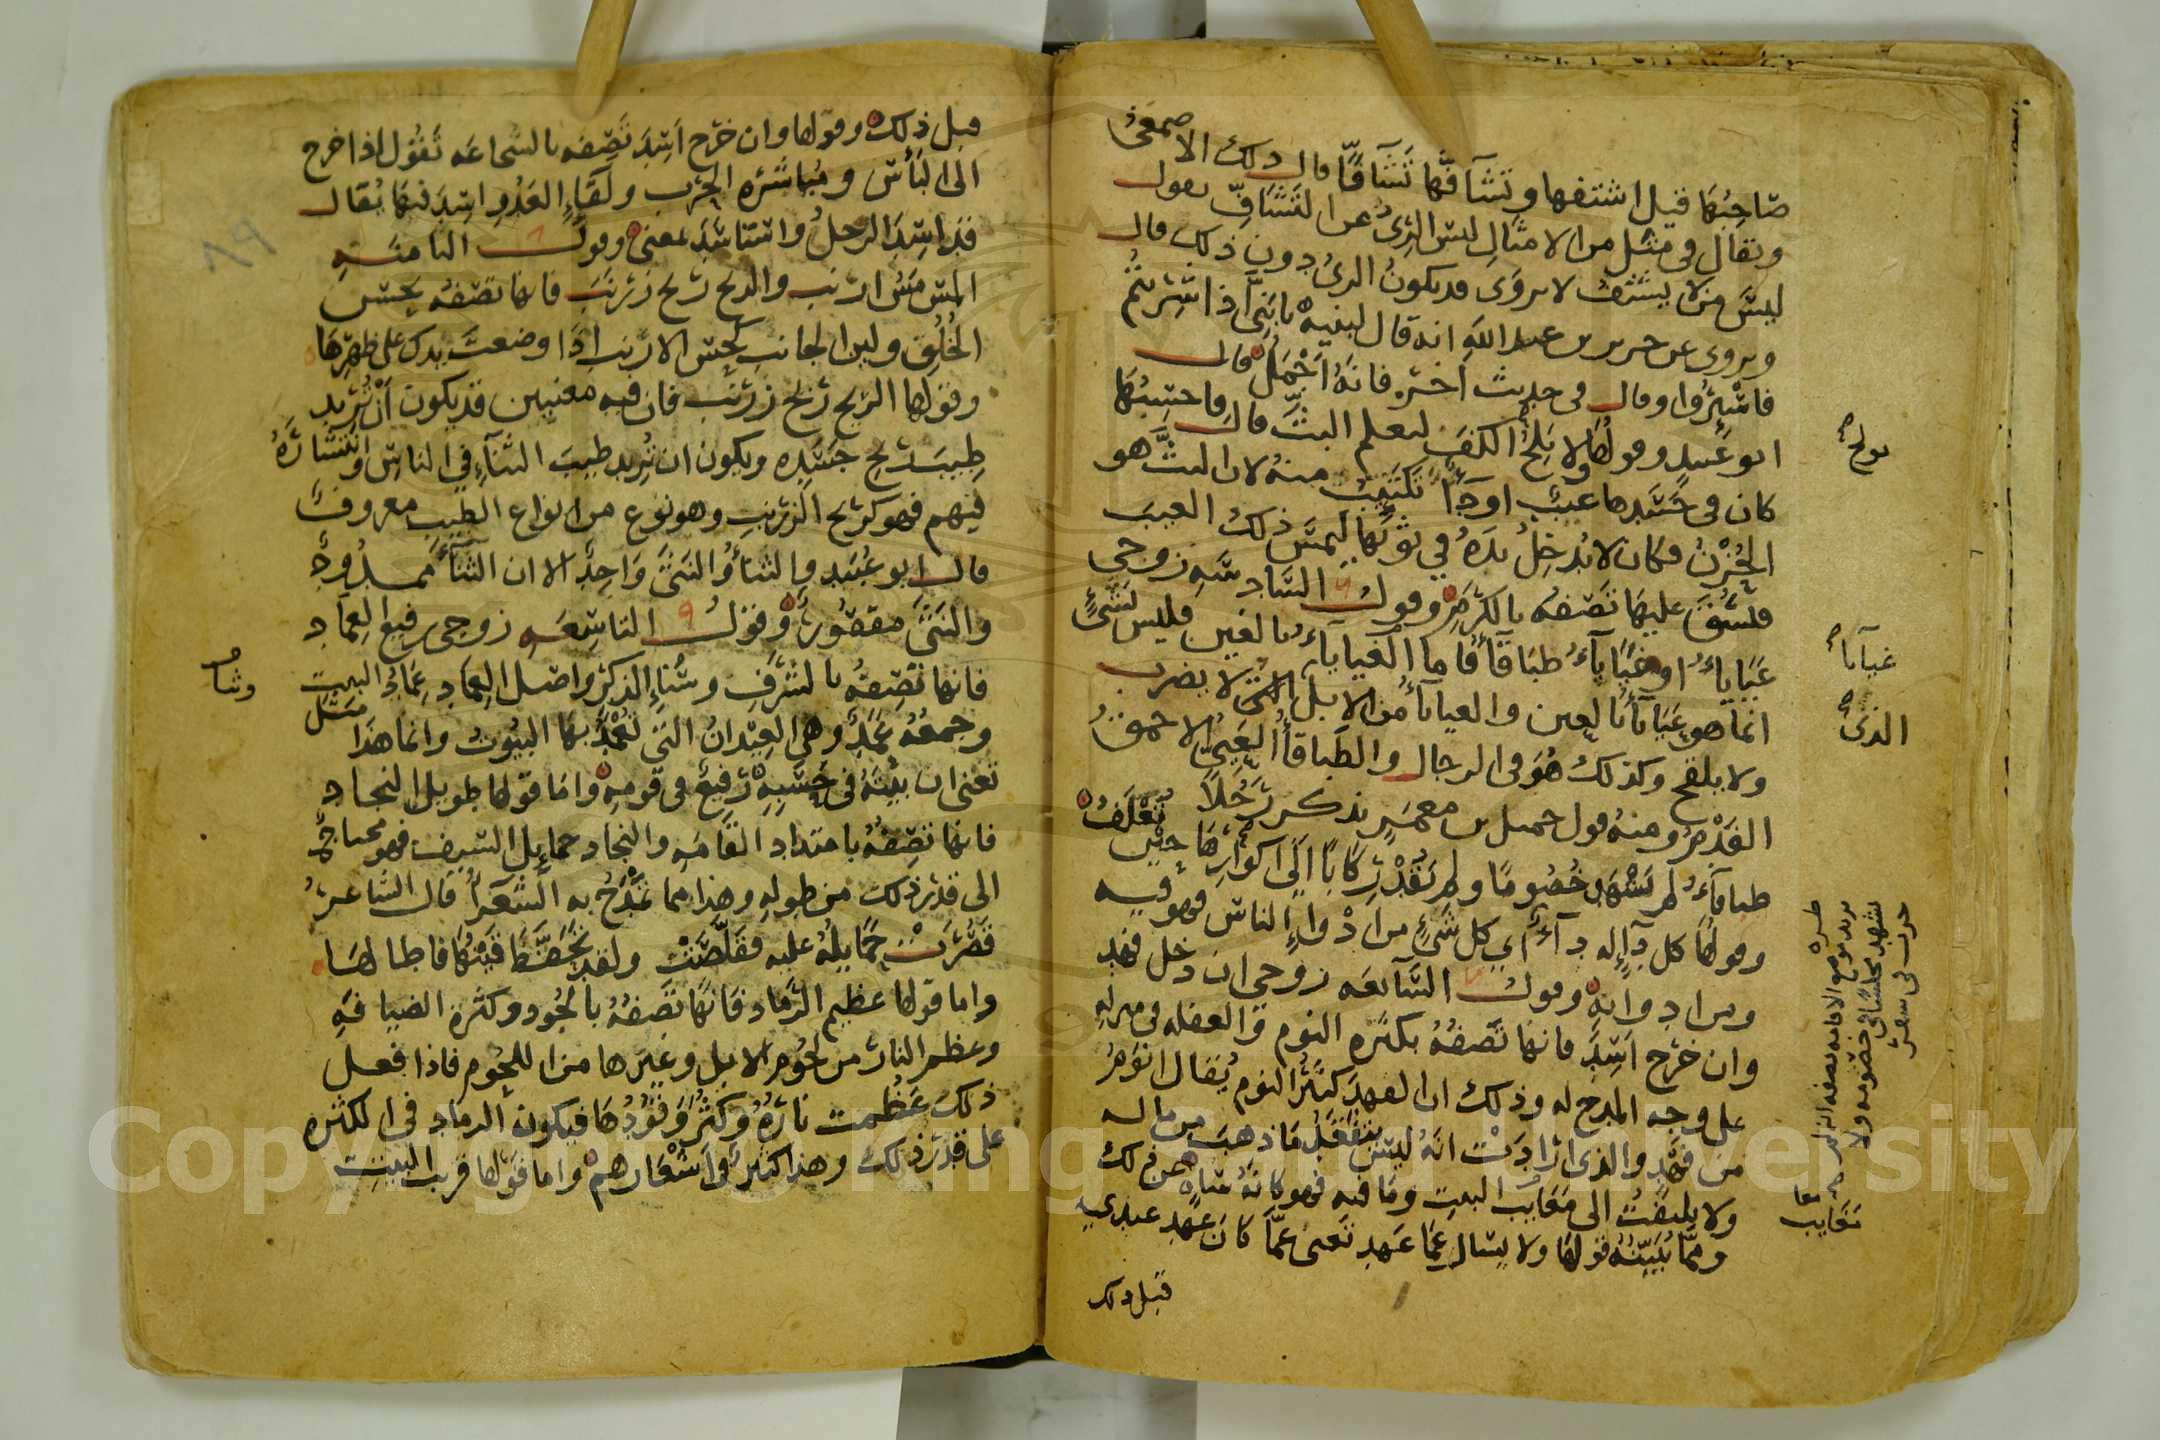 صاحبها قيل اشتفها وتشآفّها تشآفًّا قال ذلك الاصمعي
ويقال في مثل من الامثال ليس الريّ عن التشافّ يقول
ليس من لا يشتف لا يروى قد يكون الريّ دون ذلك قال
ويروى عن جرير بن عبد الله انه قال لبنيه يا بَنيّ اذا شربتم
فاسْئِرُوا وقال في حديث اخر فانه اَجْمَل قال
ابو عبيد وقولها ولا يلج الكف ليعلم البث قال فاحسبها
كان في جسدها عيب او دآء تكتئب منه لان البث هو
الحزن فكان لا يدخل يده في ثوبها ليمس ذلك العيب
فيشق عليها تصفه بالكرم وقول السادسه زوجي
عَيَاياءُ او غيَاياءُ طباقآءُ فاما الغياياءُ بالغين فليس بشئ
انما هو عَيَايآءُ بالعين والعياياء من الابل الذى لا يضرب
ولا يلقح وكذلك هو فى الرجال والطباقآءُ العَيىُّ الاحمق
الفدم ومنه قول جميل بن معمر يذكر رجلًا
طباقاءُ لم يشهد خصومًا ولم يقد ركابًا الى اكوارها حين تعلف
وقولها كل دآءٍ له دآءٌ اي كل شئٍ من ادْواءِ الناس فهو فيه
ومن ادوائه وقول السابعه زوجي ان دخل فهد
وان خرج اسد فانها تصفه بكثره النوم والغفله في منزله
على وجه المدح له وذلك ان الفهد كثير النوم يقال انوم
من فهد والذى ارادت انه ليس يتفقد ما ذهب من ماله
ولا يلتفت الى معايب البيت وما فيه فهو كانه ساهٍ عن ذلك
ومما يبينه قولها ولا يسال عما عهد تعنى عمّا كان عهد عندي
قبل ذلك
يولج
غياياء
الذى
معا
معايب
قبل ذلك وقولها وان خرج اسد تصفه بالشجاعه تقول اذا خرج
الى البأس ومباشره الحرب ولقاءِ العدو اسد فيها يقال
قد اسد الرجل واستاسد بمعنى وقول الثامنه
المس مس ارنب والريح ريح زرنب فانها تصفه بحسن
الخلق ولين الجانب كمس الارنب اذا وضعت يدك على ظهرها
وقولها الريح ريح زرنب فان فيه معنيين قد يكون ان تريد
طيب ريح جسده ويكون ان تريد طيب الثنآء في الناس وانتشاره
فيهم فهو كريح الزرنب وهو نوع من انواع الطيب معروف
قال ابو عبيد والثناء والنثى واحد الا ان الثنآء ممدود
والنثى مقصور وقول التاسعه زوجى رفيع العماد
فانها تصفه بالشرف وسناءِ الذكر واصل العماد عماد البيت
وجمعه عمد وهي العيدان التي تعمد بها البيوت وانما هذا مثل
تعنى ان بيته فى حسبه رفيع فى قومه واما قولها طويل النجاد
فانها تصفه بامتداد القامه والنجاد حمايل السيف فهو يحتاج
الى قدر ذلك من طوله وهذا مما تمدح به الشعرآءُ قال الشاعر
قصرت حمايله عليه فقلصت ولقد تحفظ قينها فاطالها
واما قولها عظيم الرماد فانها تصفه بالجود وكثرة الضيافه
وعظم النار من لحوم الابل وغيرها من اللحوم فاذا فعل
ذلك عظمت ناره وكثر وقودها فيكون الرماد في الكثره
على قدر ذلك وهذا كثير في اشعارهم واما قولها قريب البيت
Copyright © King Saud University